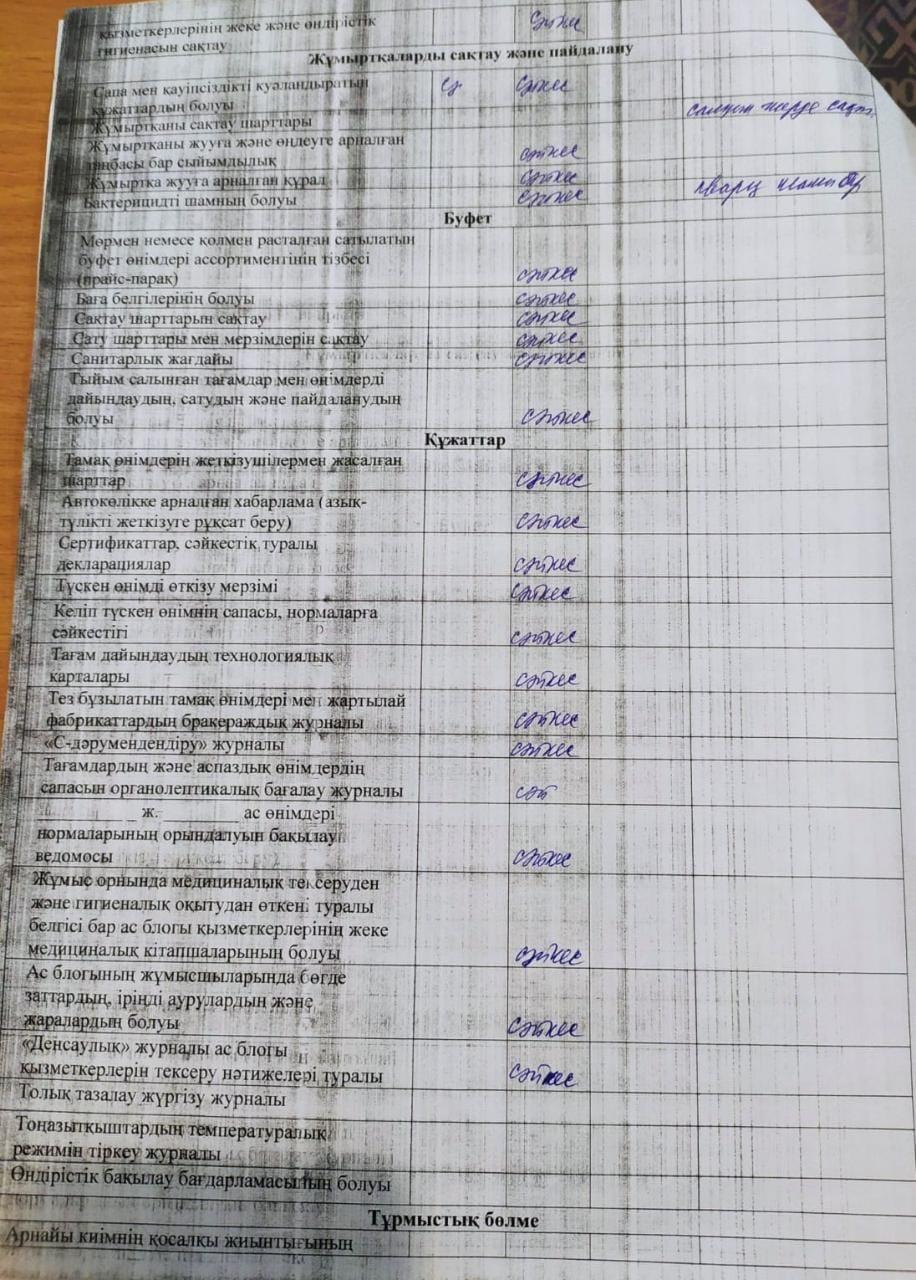 қызметкерлерінің жеке және өндірістік
гигиенасын сақтау
Жұмыртқаларды сақтау және пайдалану
Сапа мен қауіпсіздікті куәландыратын
құжаттардың болуы
Жұмыртқаны сақтау шарттары
Жұмыртқаны жууға және өңдеуге арналған
таңбасы бар сыйымдылық сәйкес
Жұмыртқа жууға арналған құрал сәйкес
Бактерицидті шамның болуы сәйкес кварц
Буфет
Мөрмен немесе қолмен расталған сатылатын
буфет өнімдері ассортиментінің тізбесі
(прайс-парақ) сәйкес
Баға белгілерінің болуы сәйкес
Сақтау шарттарын сақтау сәйкес
Сату шарттары мен мерзімдерін сақтау сәйкес
Санитарлық жағдайы сәйкес
Тыйым салынған тағамдар мен өнімдерді
дайындаудың, сатудың және пайдаланудың
болуы сәйкес
Құжаттар
Тамақ өнімдерін жеткізушілермен жасалған
шарттар сәйкес
Автокөлікке арналған хабарлама (азық-
түлікті жеткізуге рұқсат беру) сәйкес
Сертификаттар, сәйкестік туралы
декларациялар сәйкес
Түскен өнімді өткізу мерзімі сәйкес
Келіп түскен өнімнің сапасы, нормаларға
сәйкестігі сәйкес
Тағам дайындаудың технологиялық
карталары сәйкес
Тез бұзылатын тамақ өнімдері мен жартылай
фабрикаттардың бракераждық журналы сәйкес
«С-дәрумендендіру» журналы сәйкес
Тағамдардың және аспаздық өнімдердің
сапасын органолептикалық бағалау журналы
ж. ас өнімдері
нормаларының орындалуын бақылау
ведомосы сәйкес
Жұмыс орнында медициналық тексеруден
және гигиеналық оқытудан өткені туралы
белгісі бар ас блогы қызметкерлерінің жеке
медициналық кітапшаларының болуы сәйкес
Ас блогының жұмысшыларында бөгде
заттардың, іріңді аурулардың және
жаралардың болуы сәйкес
«Денсаулық» журналы ас блогы
қызметкерлерін тексеру нәтижелері туралы сәйкес
Толық тазалау жүргізу журналы
Тоңазытқыштардың температуралық
режимін тіркеу журналы
Өндірістік бақылау бағдарламасының болуы
Тұрмыстық бөлме
Арнайы киімнің қосалқы жиынтығының